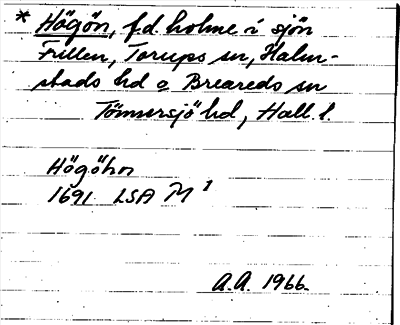 * Högön, f.d. holme i sjön
Frillen, Torups sn, Halm-
stads hd o Breareds sn
Tönnersjö hd, Hall. l.
Högöhn
1691 LSA M 1
A.A. 1966.